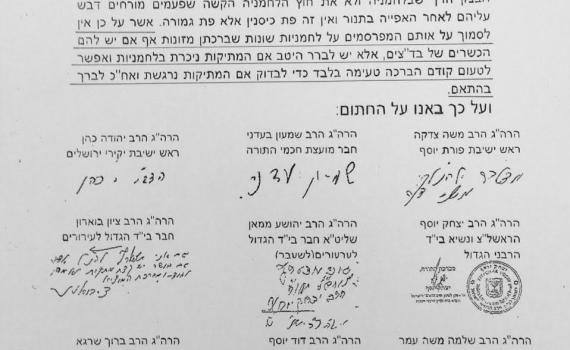 הבצק הרך שבלחמניה ולא את חוץ הלחמניה הקשה שפעמים מורחים דבש
עליהם לאחר האפייה בתנור ואין זה פת כיסנין אלא פת גמורה. אשר על כן אין
לסמוך על אותם המפרסמים על לחמניות שונות שברכתן מזונות אף אם יש להם
הכשרים של בד"צים, אלא יש לברר היטב אם המתיקות ניכרת בלחמניות ואפשר
לטעום קודם הברכה טעימה בלבד כדי לבדוק אם המתיקות נרגשת ואח"כ לברך
בהתאם.
ועל כך באנו על החתום:
הרה"ג הרב משה צדקה
ראש ישיבת פורת יוסף
הרה"ג הרב שמעון בעדני
חבר מועצת חכמי התורה
הרה"ג הרב יהודה כהן
ראש ישיבת יקירי ירושלים
משה צדקה
שמעון בעדני
יהודה כהן
הרה"ג הרב יצחק יוסף
הראשל"צ ונשיא בי"ד
הרבני הגדול
הרה"ג הרב יהושע ממאן
שליט"א חבר בי"ד הגדול
לערעורים(לשעבר)
הרה"ג הרב ציון בוארון
חבר בי"ד הגדול לעירורים
הרה"ג הרב שלמה משה עמר
הרה"ג הרב דוד יוסף
הרה"ג הרב ברוך שרגא